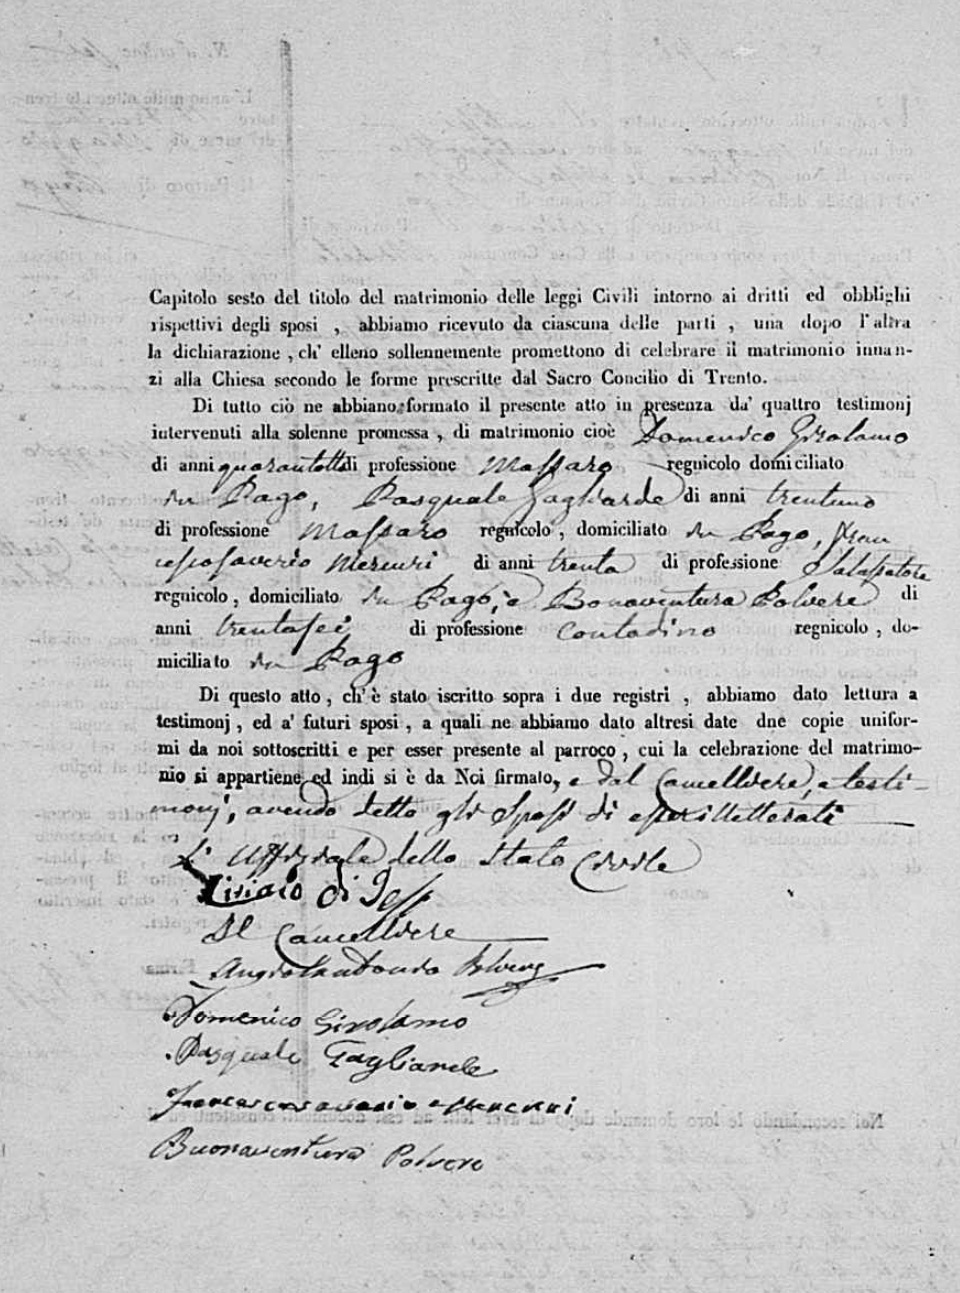 Capitolo sesto del titolo del matrimonio delle leggi Civili intorno ai dritti ed obblighi
rispettivi degli sposi , abbiamo ricevuto da ciascuna delle parti , una dopo l'altra
la dichiarazione , ch' elleno sollennemente promettono di celebrare il matrimonio innan-
zi alla Chiesa secondo le forme prescritte dal Sacro Concilio di Trento.
Di tutto ciò ne abbiano formato il presente atto in presenza da' quattro testimonj
intervenuti alla solenne promessa , di matrimonio cioè Domenico Girolamo
di anni quarantotto di professione Massaro regnicolo domiciliato
in Pago, Pasquale Gagliarde di anni trentuno
di professione Massaro regnicolo , domiciliato in Pago, Fran
cescosaverio Mercuri di anni trenta di professione Salassatore
regnicolo , domiciliato in Pago, e Bonaventura Polvere di
anni trentasei di professione contadino regnicolo , do-
miciliato in Pago
Di questo atto , ch' è stato iscritto sopra i due registri , abbiamo dato lettura a
testimonj , ed a' futuri sposi , a quali ne abbiamo dato altresi date dne copie unifor-
mi da noi sottoscritti e per esser presente al parroco , cui la celebrazione del matrimo-
nio si appartiene ed indi si è da Noi firmato, e dal Cancelliere, e testi-
monj, avendo detto gli Sposi di esser illetterati
L' Uffiziale dello Stato Civile
di
Il Cancelliere
Polvere
Domenico Girolamo
Pasquale Gagliarde
Francescosaverio Mercuri
Buonaventura Polvere